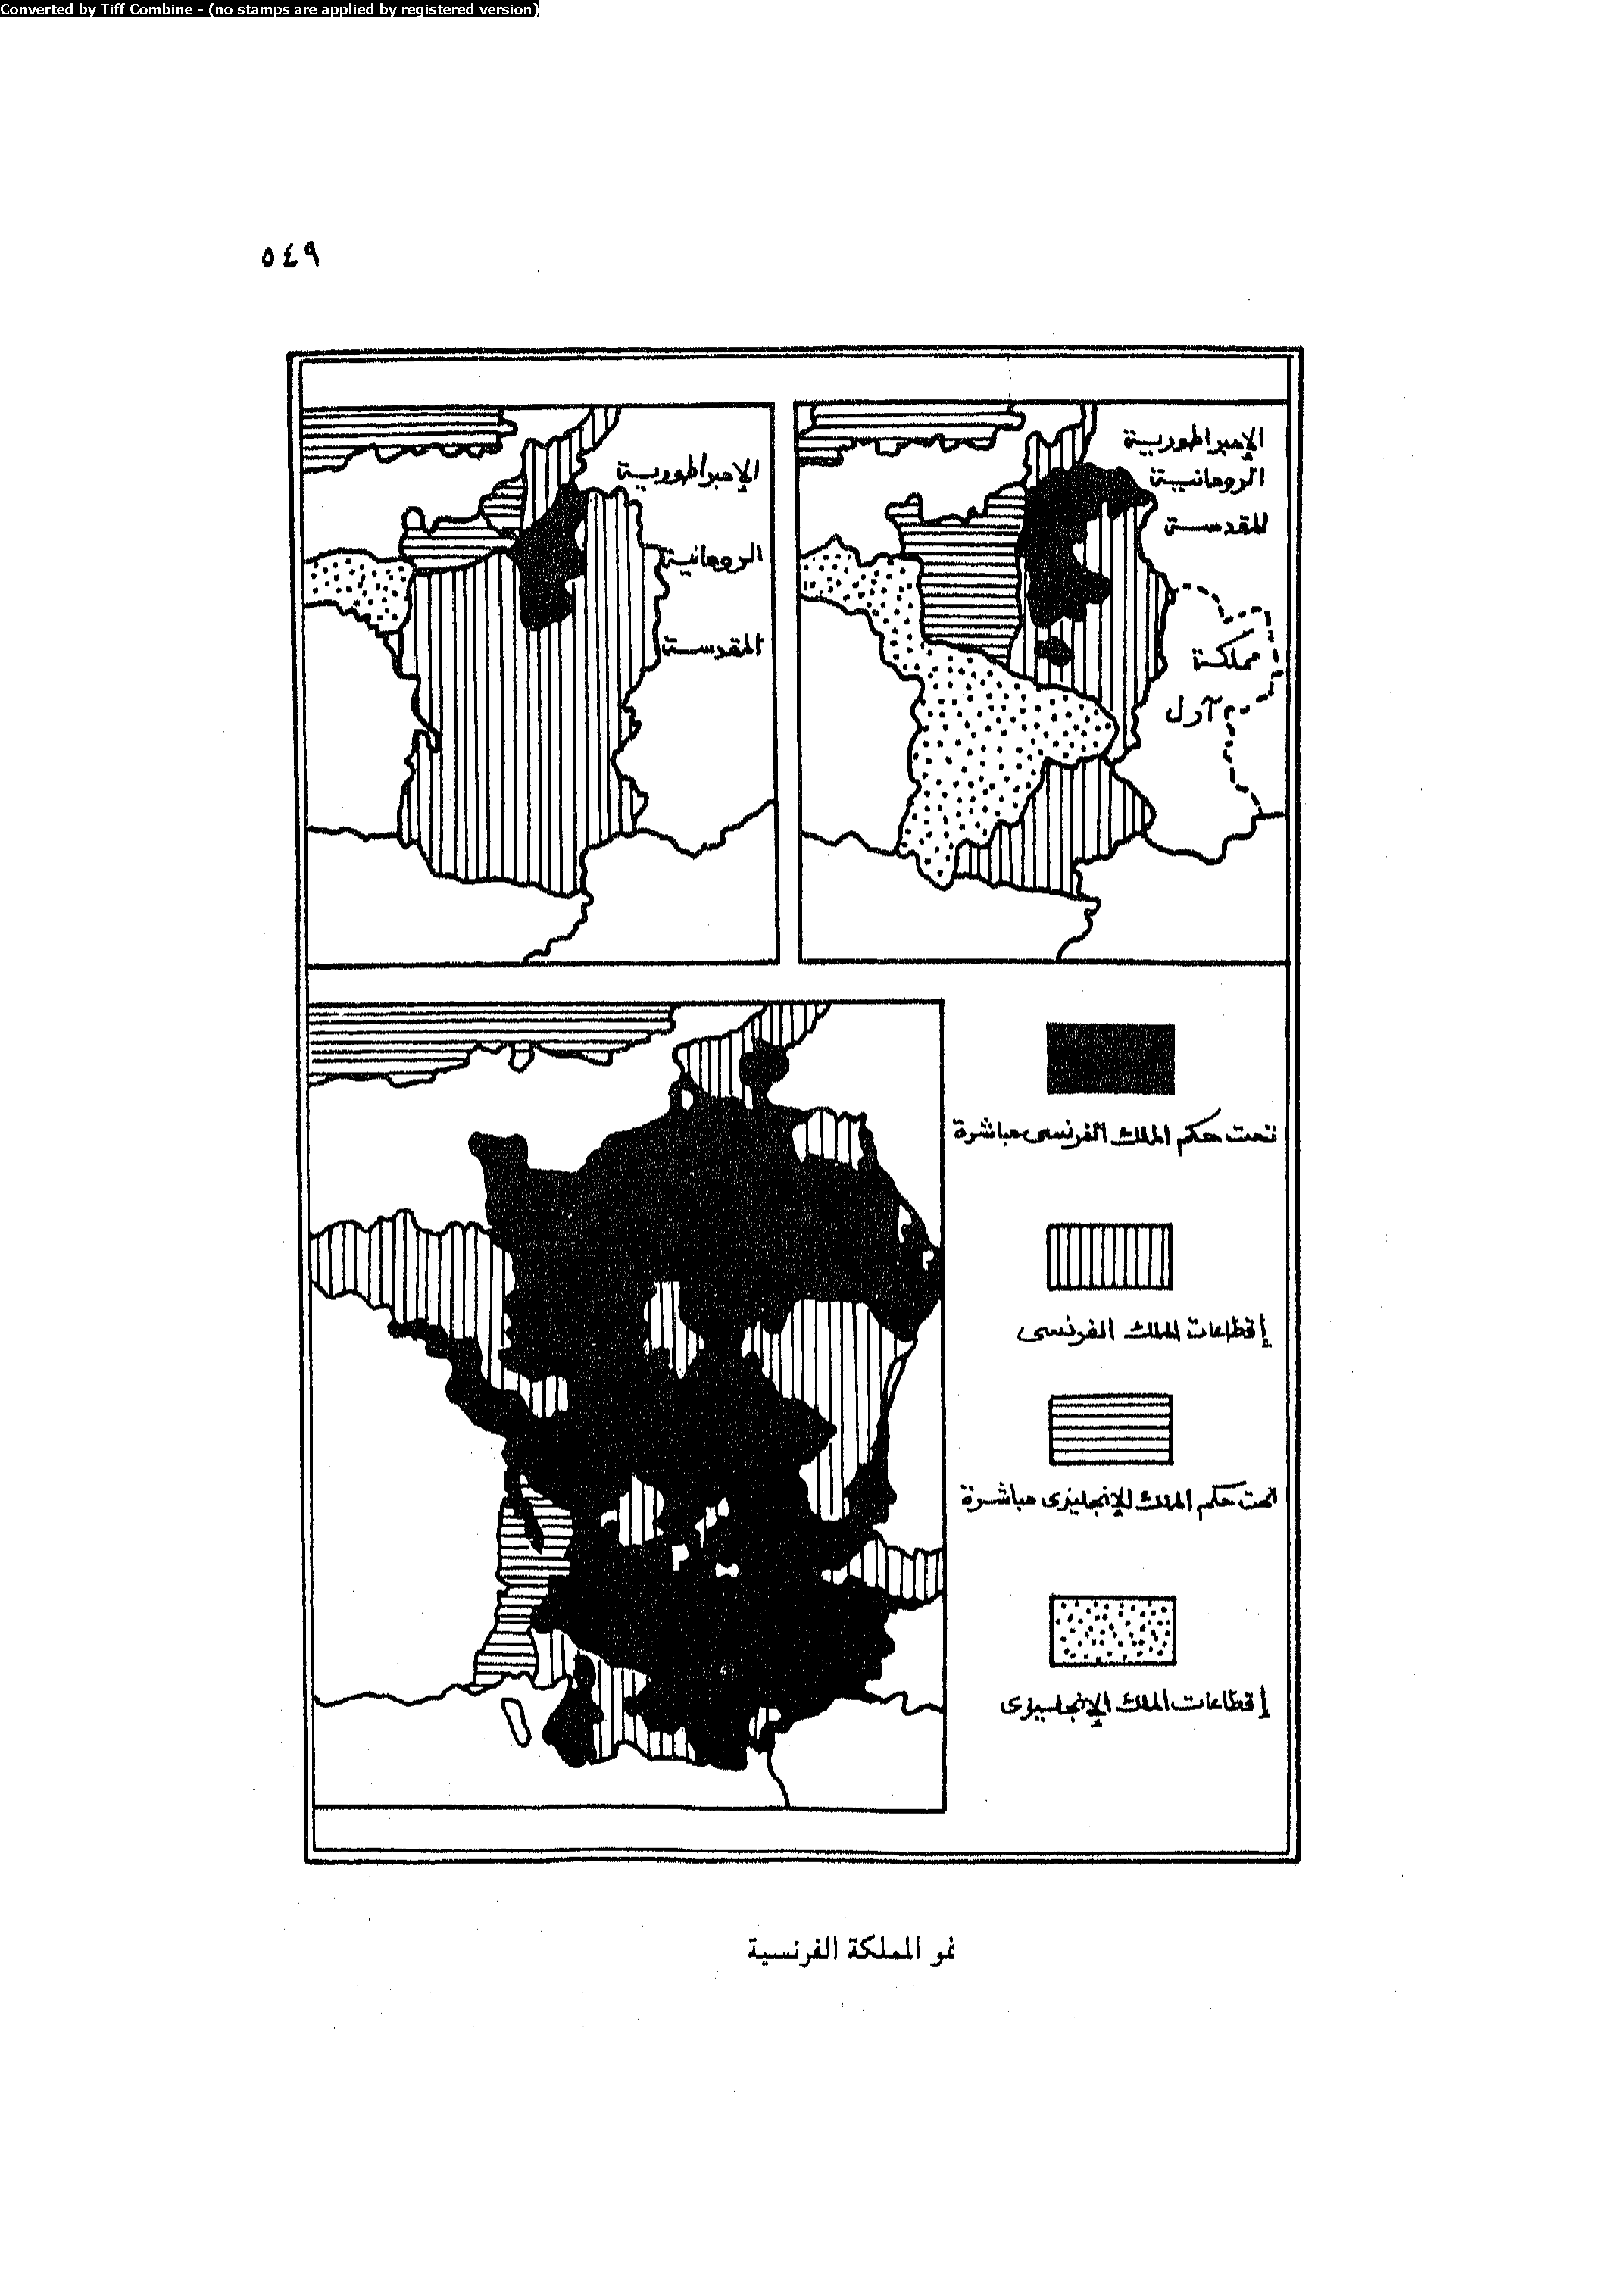 Converted by Tiff Combine - (no stamps are applied by registered version)
٥٤٩
الإمبراطورية
الرومانية
المقدسة
مملكة
آرل
الإمبراطورية
الرومانية
المقدسة
تحت حكم الملك الفرنسى مباشرة
إقطاعات الملك الفرنسى
تحت حكم الملك الإنجليزى مباشرة
إقطاعات الملك الإنجليزى
نمو المملكة الفرنسية